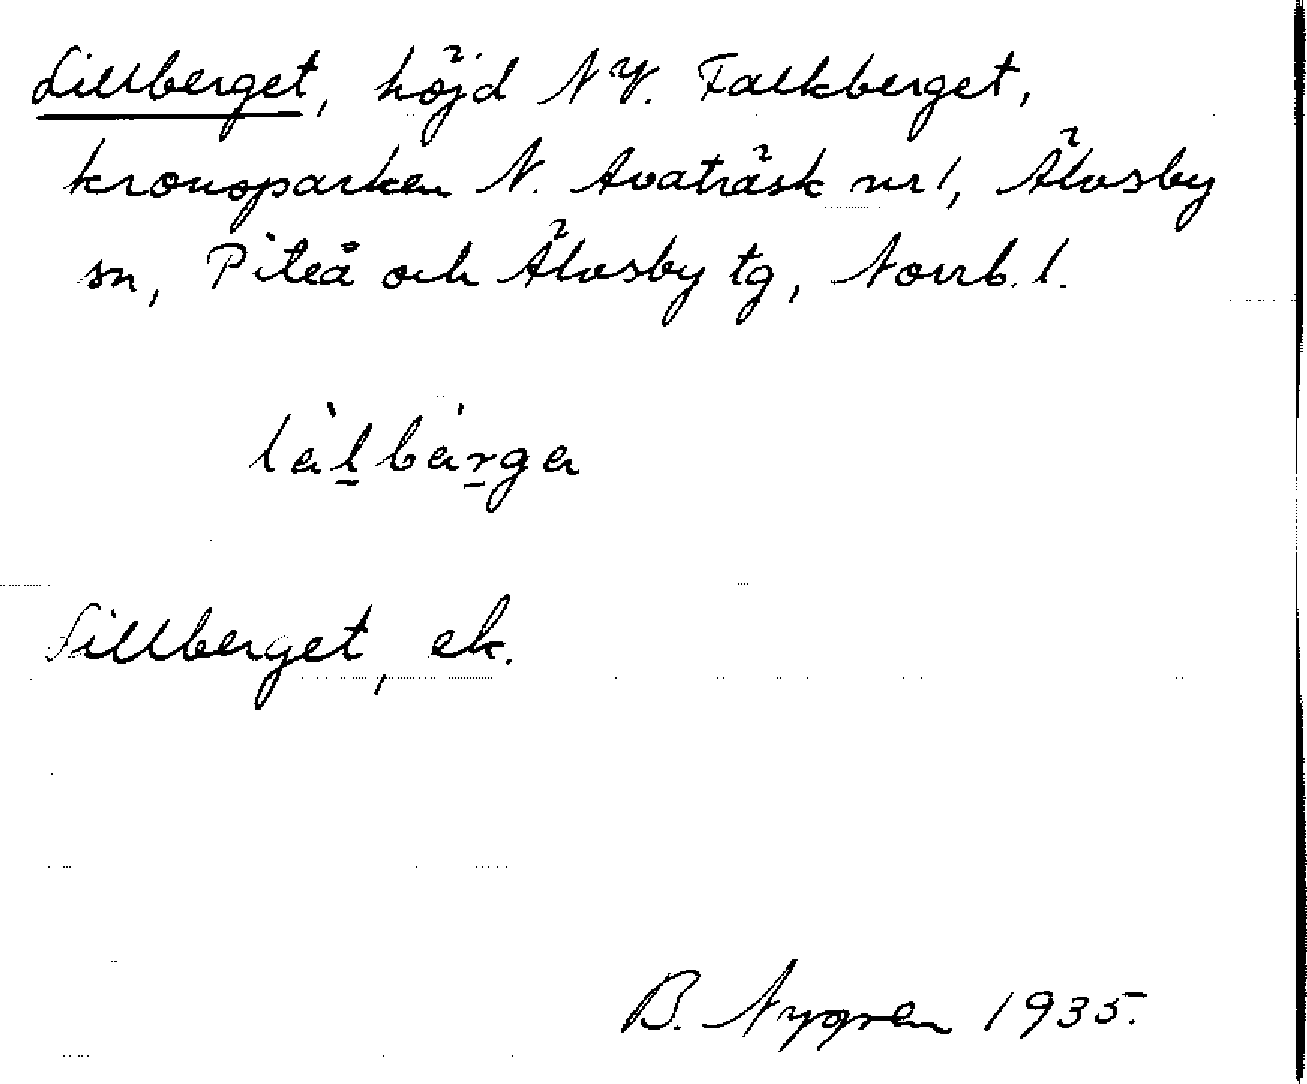 Lillberget, höjd NV. Falkberget,
kronoparken N. Avaträsk nr 1, Älvsby
sn, Piteå och Älvsby tg, Norrb. l.
làl̲bár̲ga
Lillberget, ek.
B. Nygren 1935.